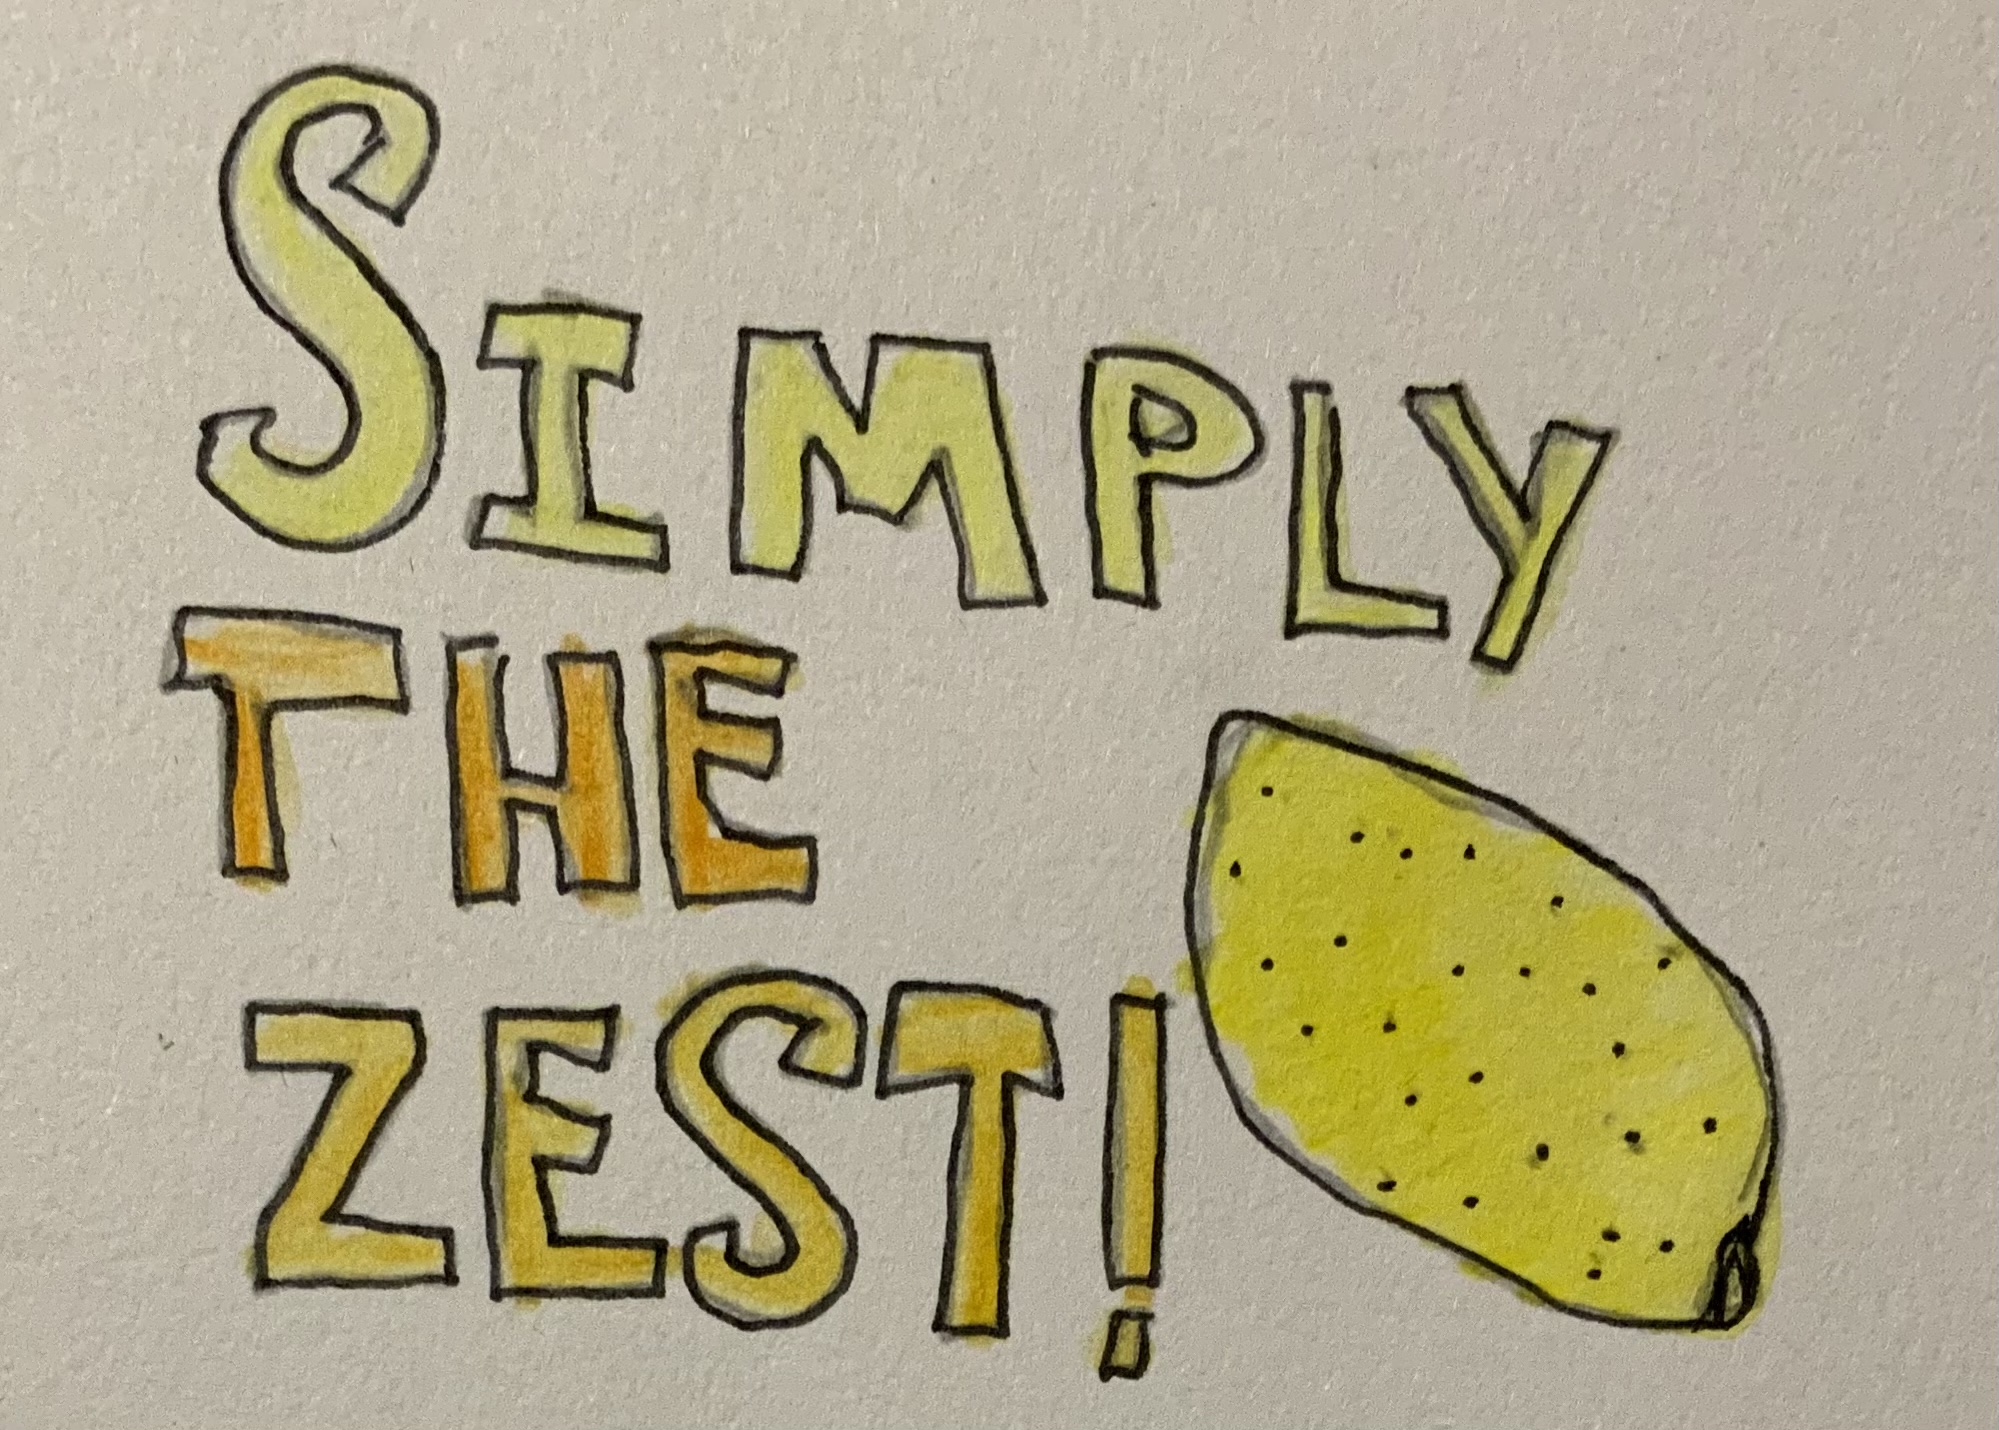 SIMPLY
THE
ZEST!